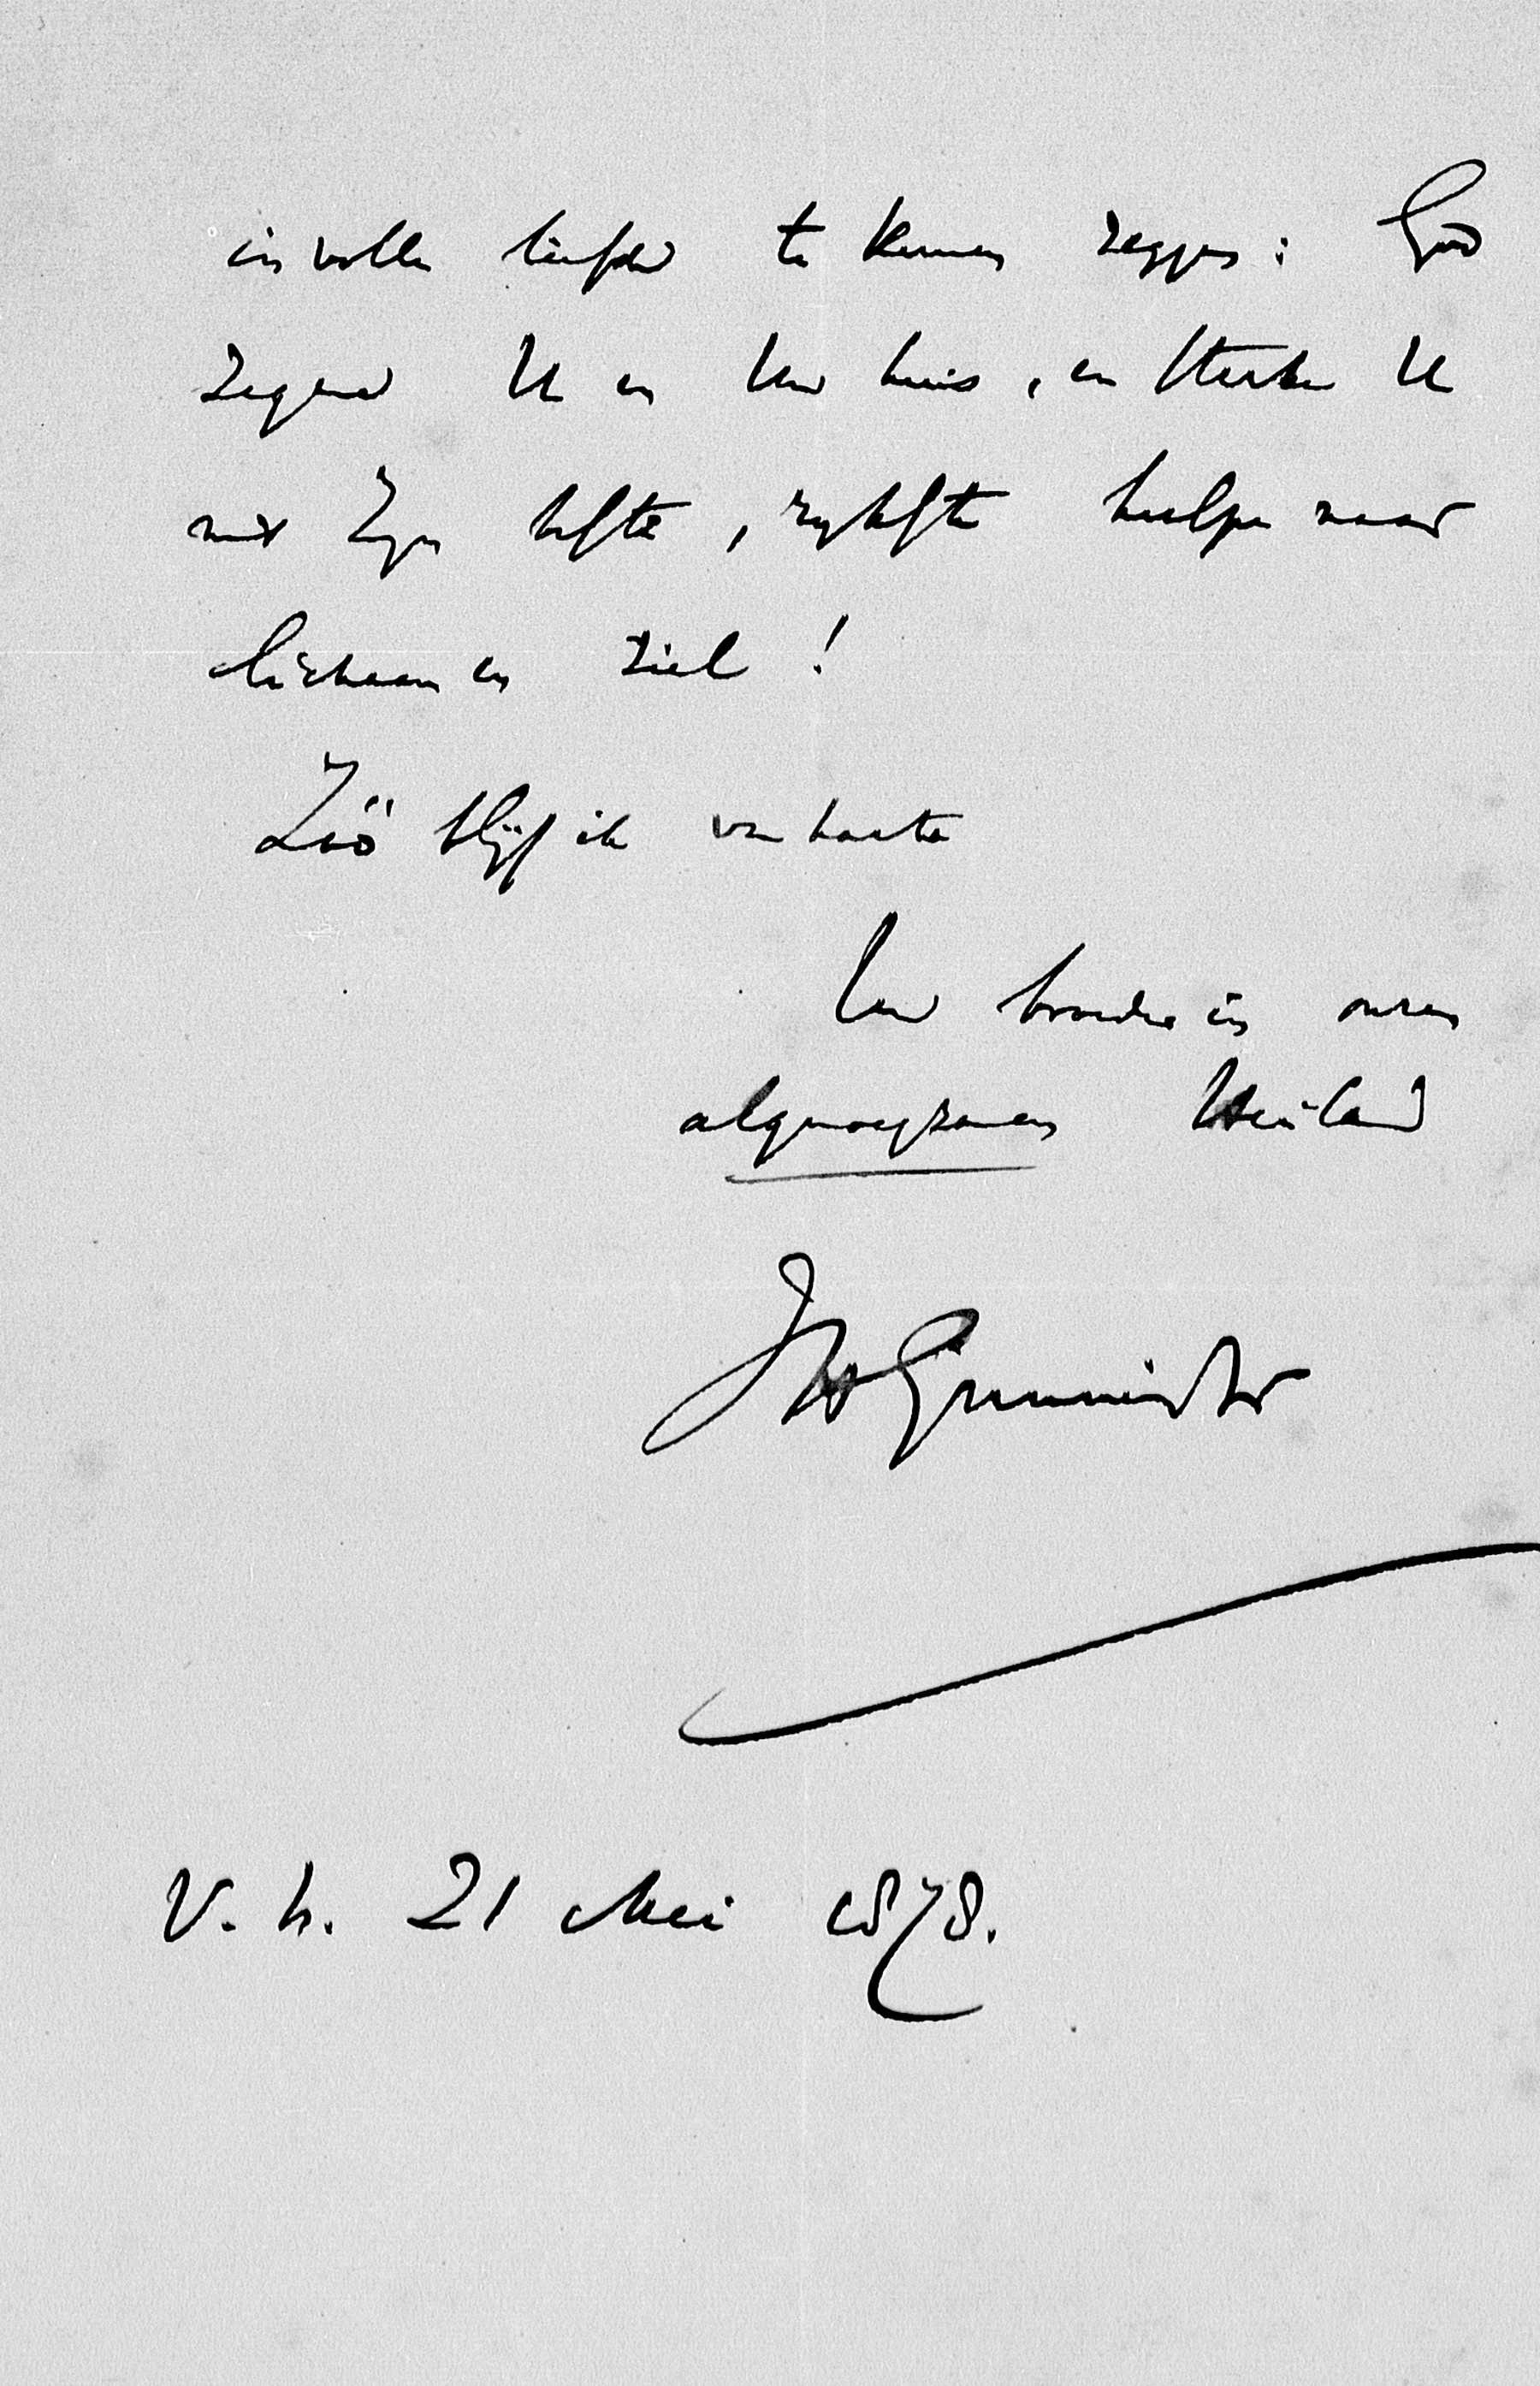 in volle liefde te kunnen zeggen: God
zegene U en Uw huis, en sterke U
met Zyn beste, rykste hulpe naar
lichaam en ziel!
Zóó blijf ik van harte
Uw broeder in onzen
algenoegzamen Heiland
JHGunning Jr
V. h. 21 Mei 1878.